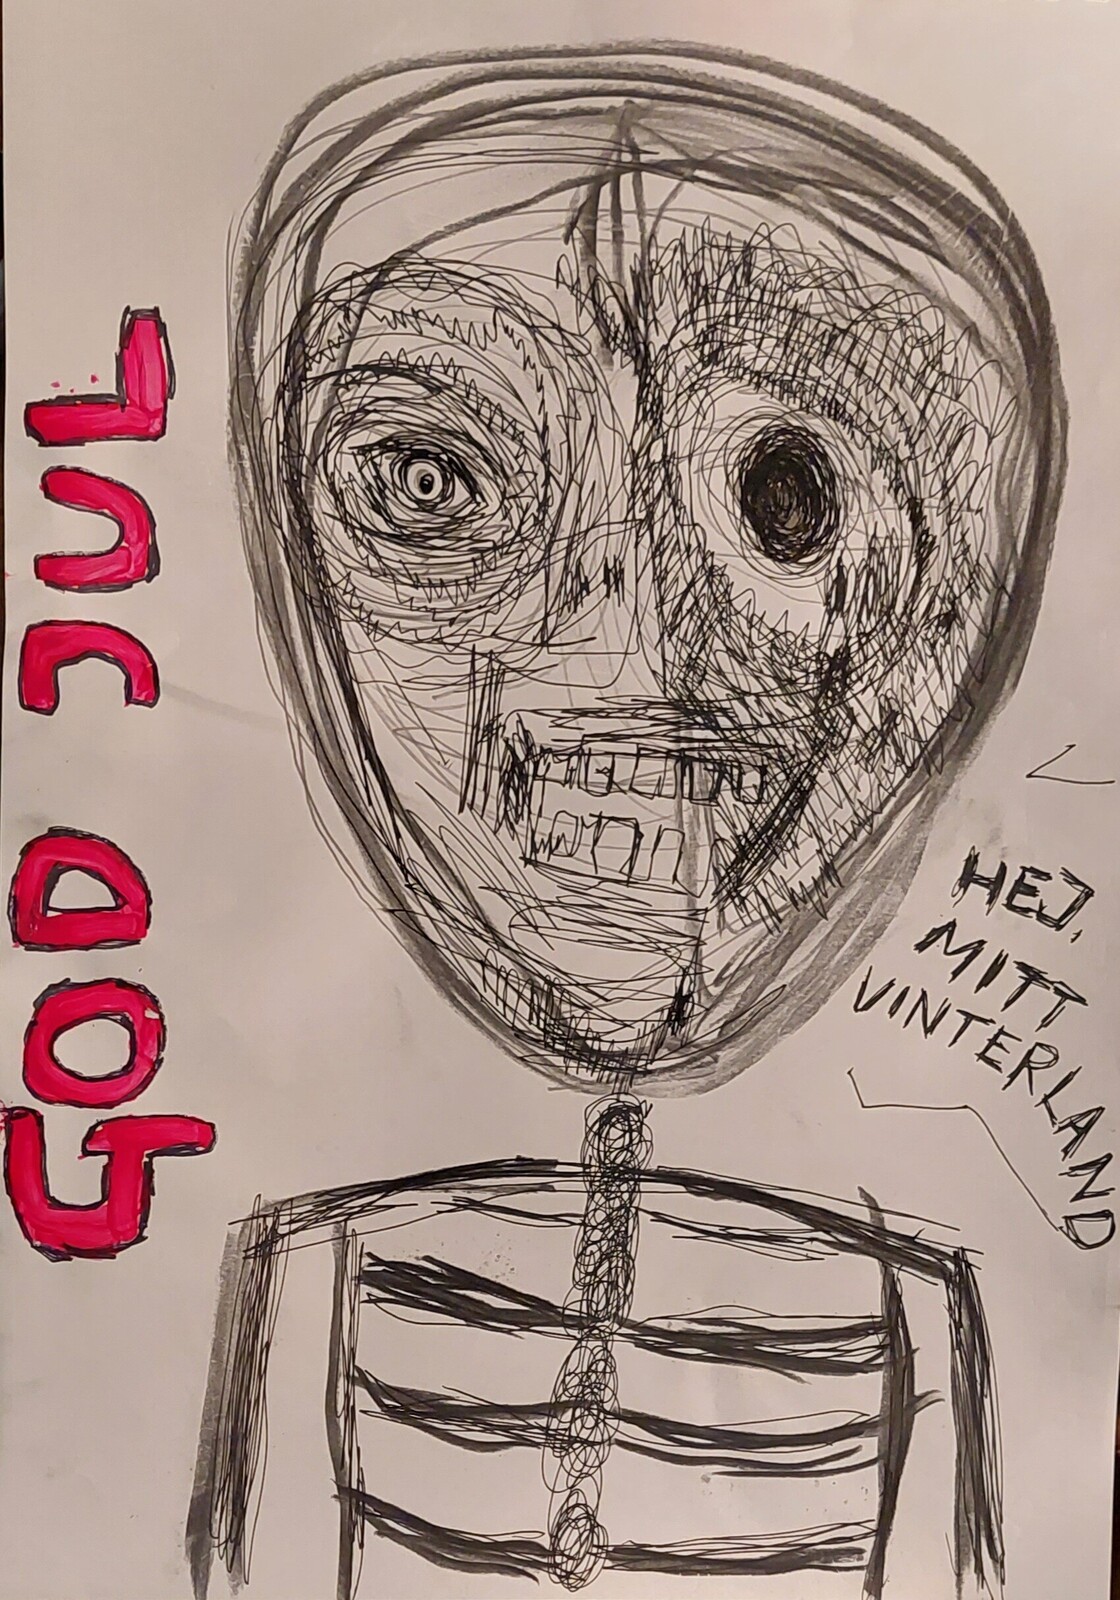 GOD JUL
HEJ,
MITT
VINTERLAND